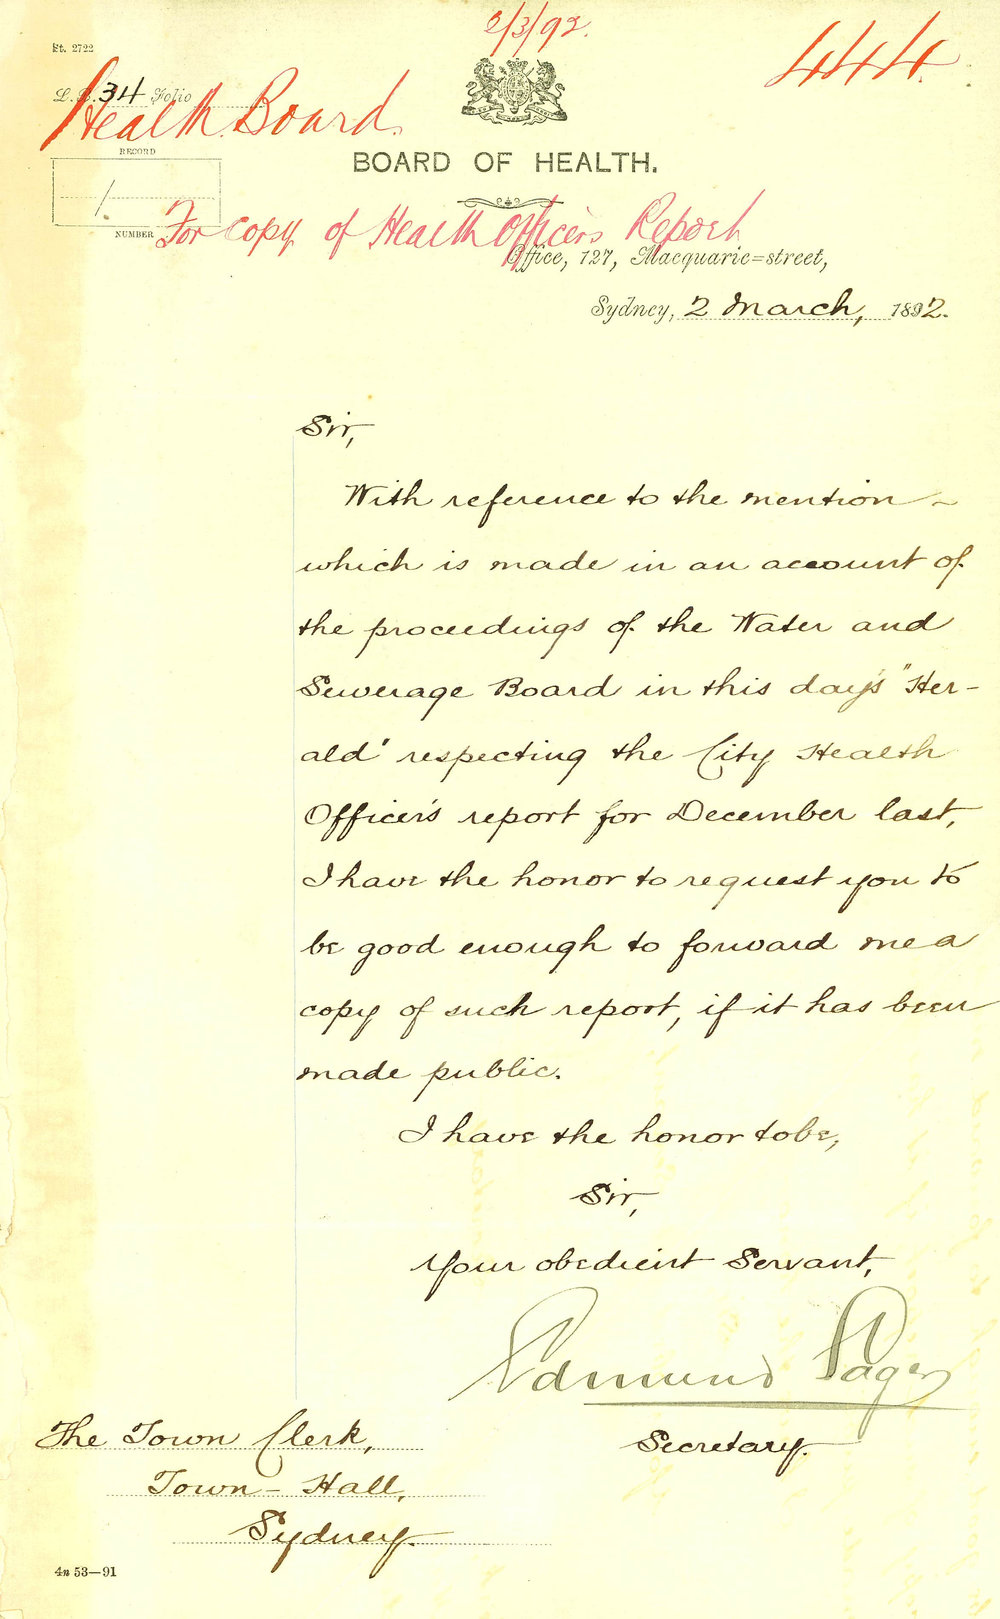 2/3/92.
444
St. 2722
L. B. 34 Folio
Health Board.
RECORD
1.
NUMBER
BOARD OF HEALTH.
For copy of Health Officers Report
Office, 127, Macquarie=street,
Sydney, 2 March, 1892.
Sir,
With reference to the mention
which is made in an account of
the proceedings of the Water and
Sewerage Board in this day's "Her-
ald" respecting the City Health
Officer's report for December last,
I have the honor to request you to
be good enough to forward me a
copy of such report, if it has been
made public.
I have the honor to be,
Sir,
Your obedient Servant,
Edmund Sager
Secretary.
The Town Clerk,
Town-Hall,
Sydney.
4n 53—91